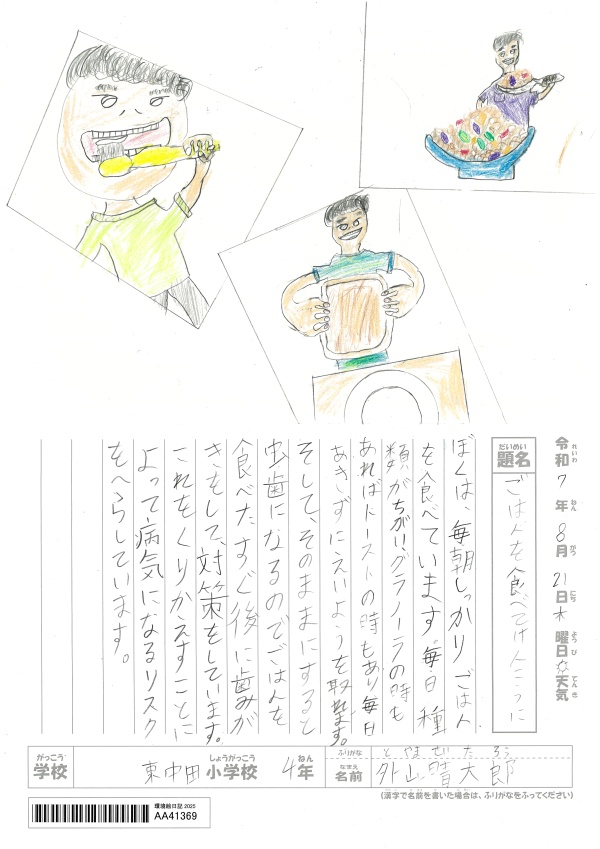 令和 7 年 8 月 21 日 木 曜日 天気
れいわ ねん がつ にち ようび てんき
だいめい
題名
ごはんを食べてけんこうに
ぼくは、毎朝しっかりごはん
を食べています。毎日種
類がちがい、グラノーラの時も
あればトーストの時もあり毎日
あきずにえいようを取れます。
そして、そのままにすると
虫歯になるのでごはんを
食べたすぐ後に歯みが
きをして、対策をしています。
これをくりかえすことに
よって病気になるリスク
をへらしています。
がっこう
学校
東中田 小学校 4年
しょうがっこう ねん
ふりがな
とやまぜたろう
なまえ
名前
外山晴太郎
(漢字で名前を書いた場合は、ふりがなをふってください)
環境絵日記 2025
AA41369